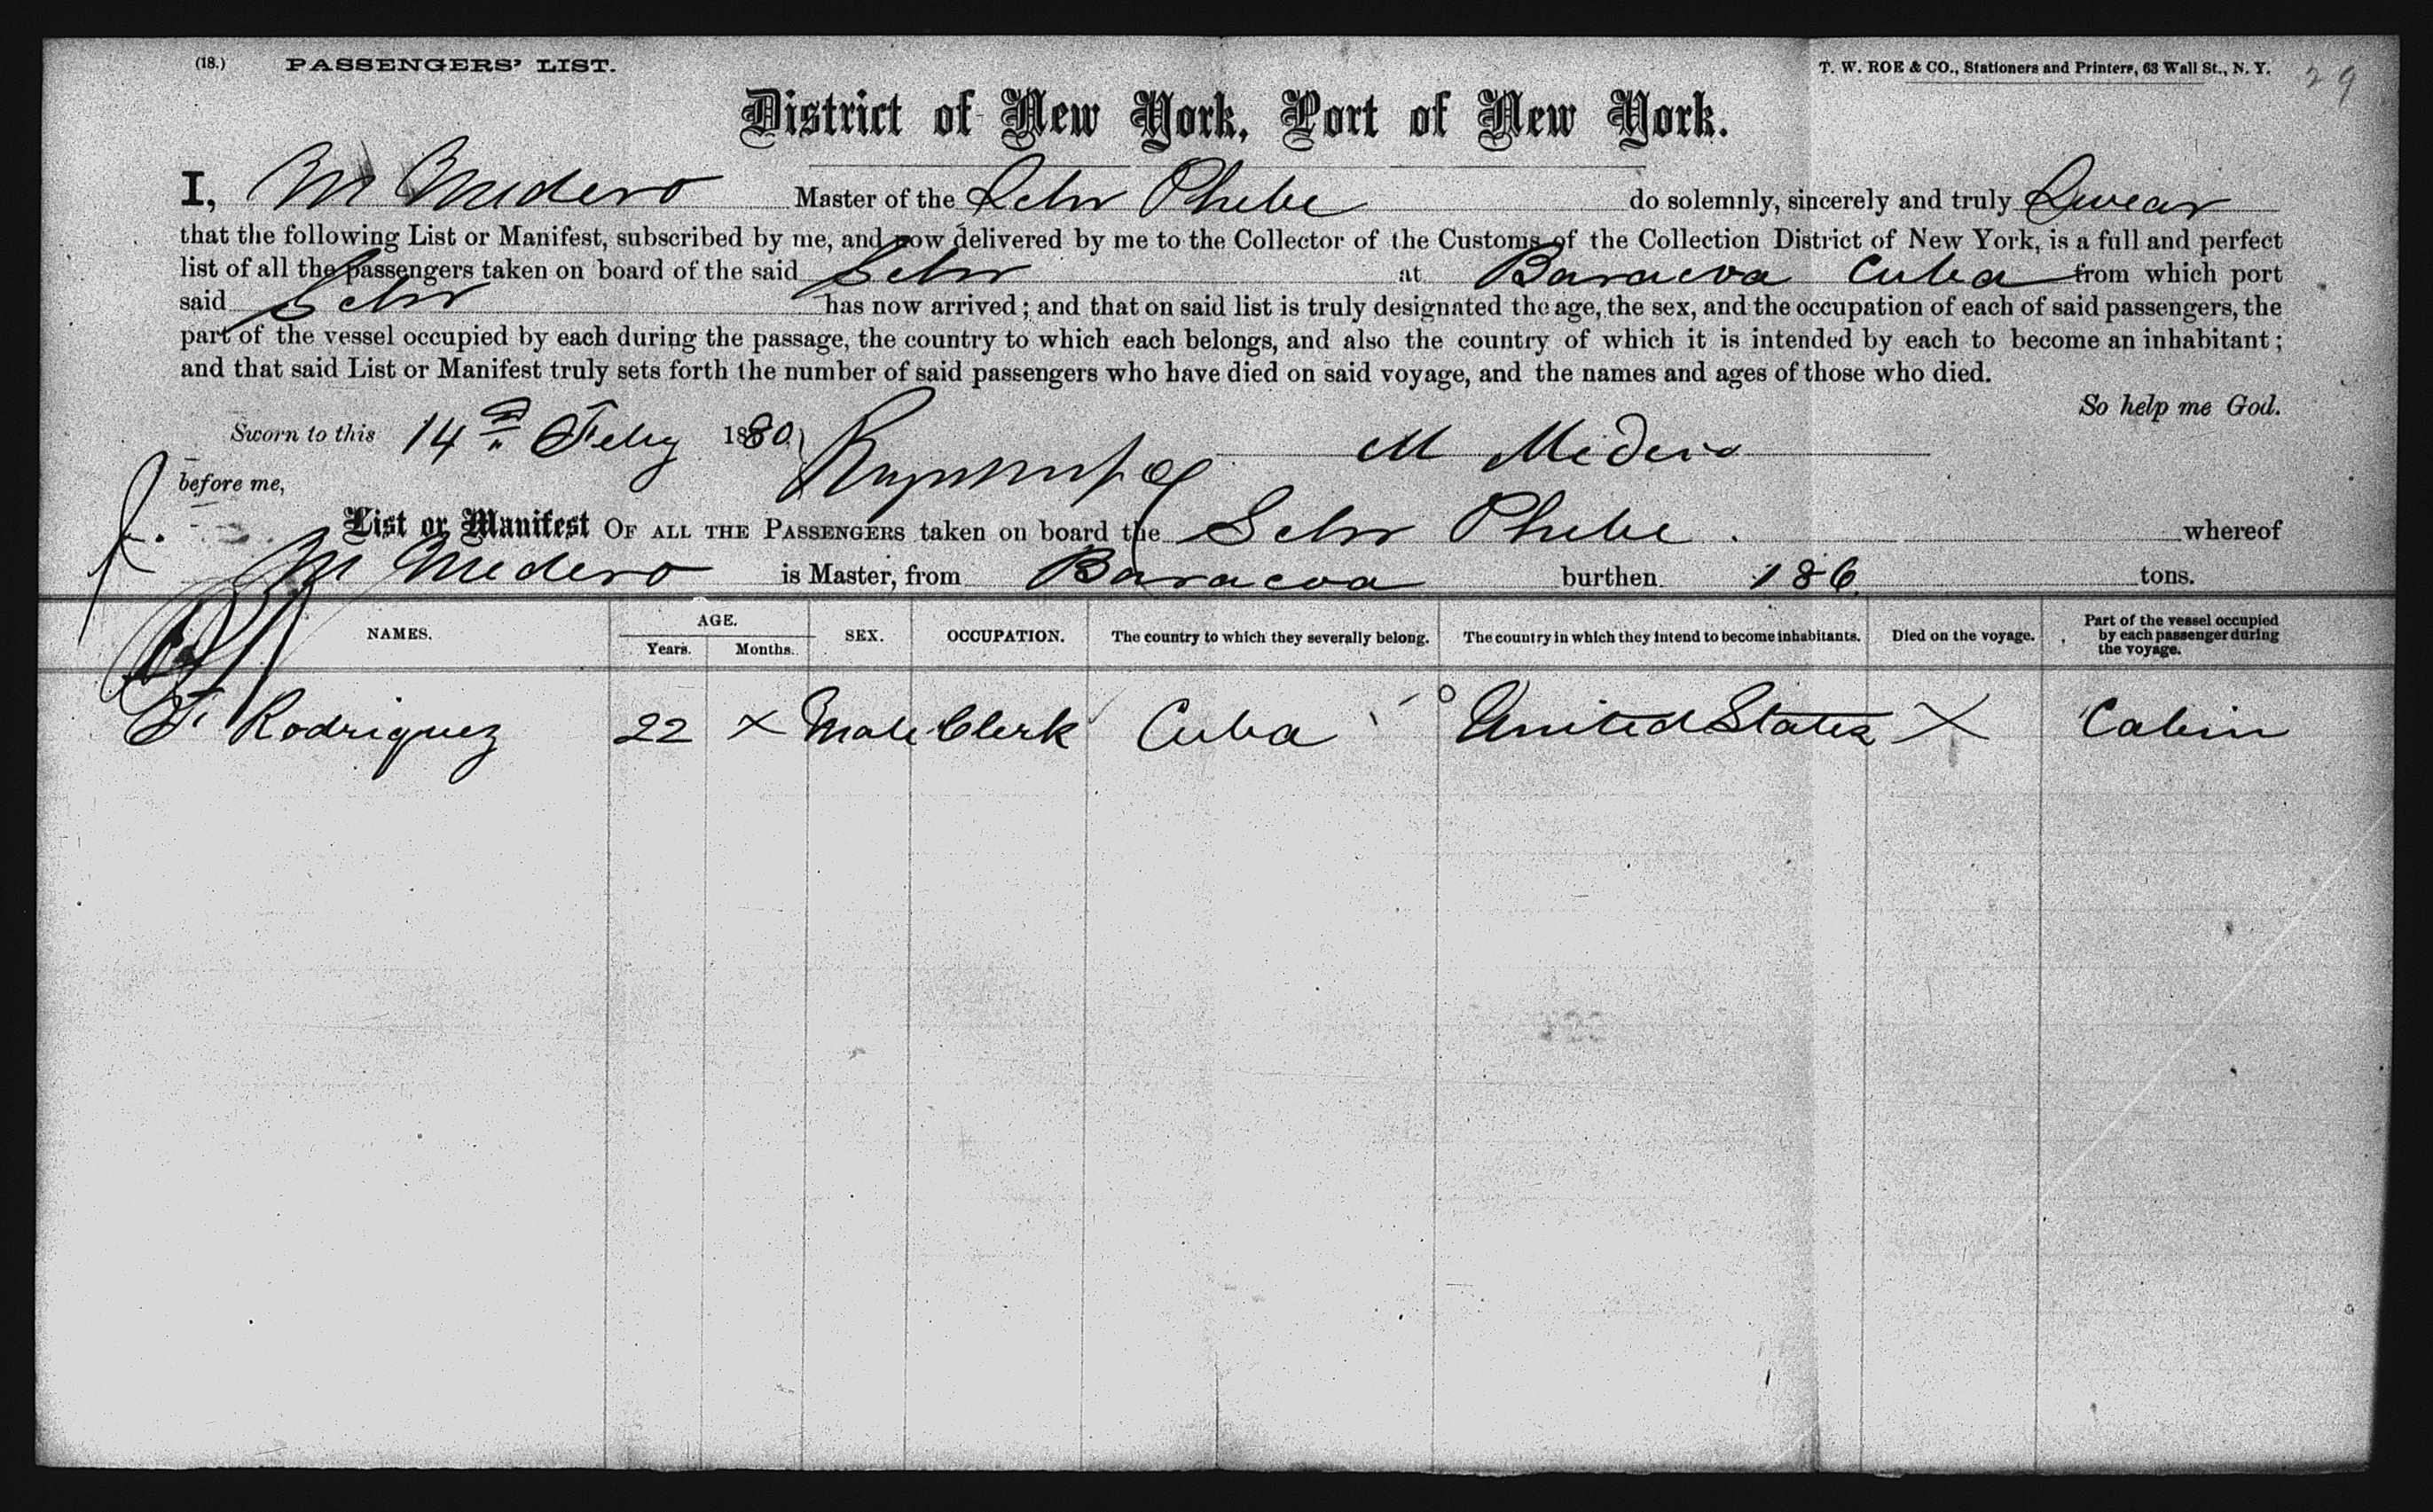 (18.) PASSENGERS' LIST. T. W. ROE & CO., Stationers and Printers, 63 Wall St., N. Y. 29
District of New York, Port of New York.
I, M Medero Master of the Schr Phebe do solemnly, sincerely and truly Swear
that the following List or Manifest, subscribed by me, and now delivered by me to the Collector of the Customs of the Collection District of New York, is a full and perfect
list of all the passengers taken on board of the said Schr at Baracoa Cuba from which port
said Schr has now arrived; and that on said list is truly designated the age, the sex, and the occupation of each of said passengers, the
part of the vessel occupied by each during the passage, the country to which each belongs, and also the country of which it is intended by each to become an inhabitant;
and that said List or Manifest truly sets forth the number of said passengers who have died on said voyage, and the names and ages of those who died.
So help me God.
Sworn to this 14th Feby 1880 M Medero
before me,
List or Manifest OF ALL THE PASSENGERS taken on board the Schr Phebe. whereof
M Medero is Master, from Baracoa burthen 186 tons.
NAMES. AGE. Years. Months. SEX. OCCUPATION. The country to which they severally belong. The country in which they intend to become inhabitants. Died on the voyage. Part of the vessel occupied by each passenger during the voyage.
F. Rodriguez 22 X Male Clerk Cuba United States X Cabin